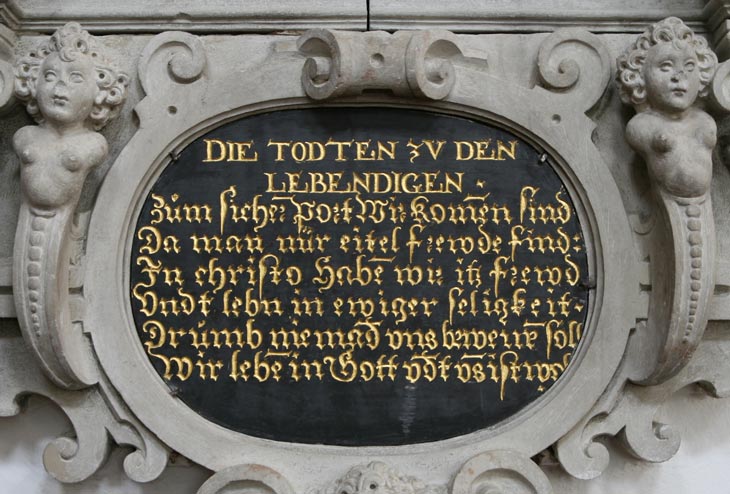 DIE TODTEN ZV DEN
LEBENDIGEN.
Zům sicher Port Wir Kom̄en sind
Da man nür eitel frewde find:
In christo Habē wir itz frewd
Vndt lebn in ewiger seligkeit.
Drůmb niemād vns beweinē soll
Wir lebē in Gott vn̄dt vns ist wol.